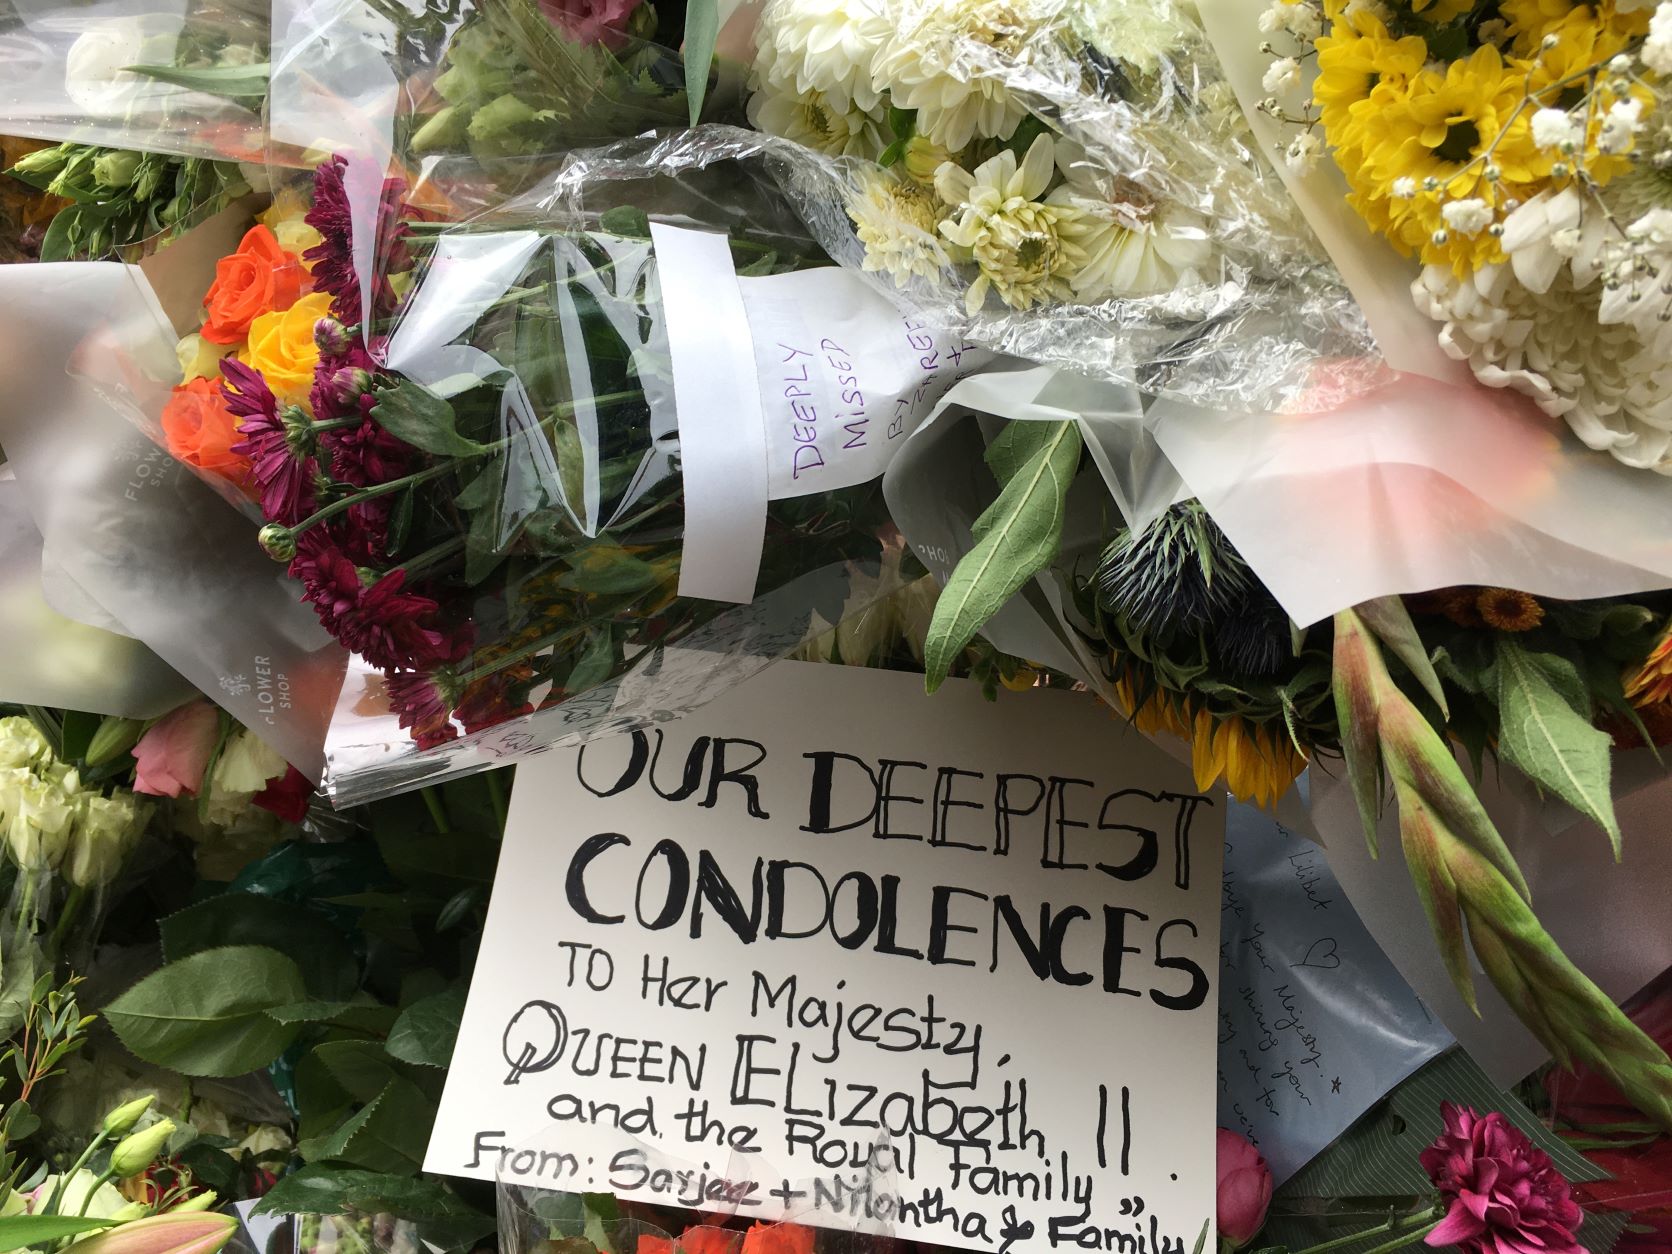 DEEPLY
MISSED
BY
FLOWER
SHOP
OUR DEEPEST
CONDOLENCES
TO Her Majesty,
QUEEN ELizabeth II.
and the Royal Family,,
From: + Nilantha & Family
Lilibet ♡
your Majesty.
shining your
and for
we've